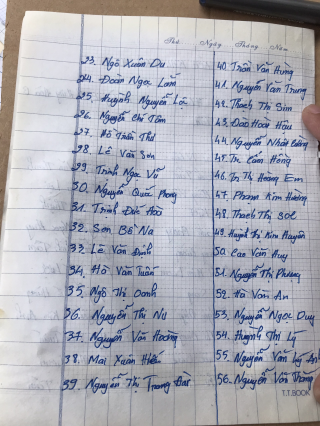 Thứ Ngày Tháng Năm
23. Ngô Xuân Du
24. Đoàn Ngọc Lắm
25. Huỳnh Nguyễn Lõ
26. Nguyễn Chí Tâm
27. Hồ Trần Thư
28. Lê Văn Sơn
29. Trịnh Ngọc Vỡ
30. Nguyễn Quốc Phong
31. Trịnh Đức Hoà
32. Sơn Bô Na
33. Lê Văn Định
34. Hà Văn Tuấn
35. Ngô Thị Oanh
36. Nguyễn Thị Nu
37. Nguyễn Văn Hoàng
38. Mai Xuân Hiếu
39. Nguyễn Thị Trang Đài
40. Trần Văn Hưng
41. Nguyễn Văn Trung
42. Thạch Thị Sim
43. Đào Hoài Hậu
44. Nguyễn Nhật Cường
45. Cẩm Hồng
46. Thị Hoàng Em
47. Phạm Kim Hường
48. Thạch Thị
49. Huỳnh Thị Kim Huyền
50. Cao Văn Huy
51. Nguyễn Thị Phương
52. Hà Văn An
53. Nguyễn Ngọc Duy
54. Huỳnh Thị Lý
55. Nguyễn Văn An
56. Nguyễn Văn Thắng
T.T.BOOK